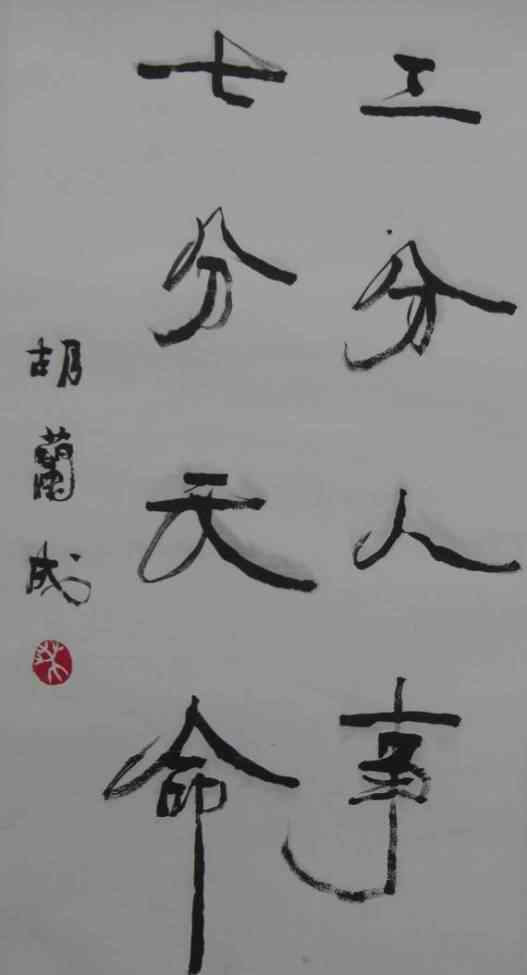 三分人事
七分天命
胡蘭成